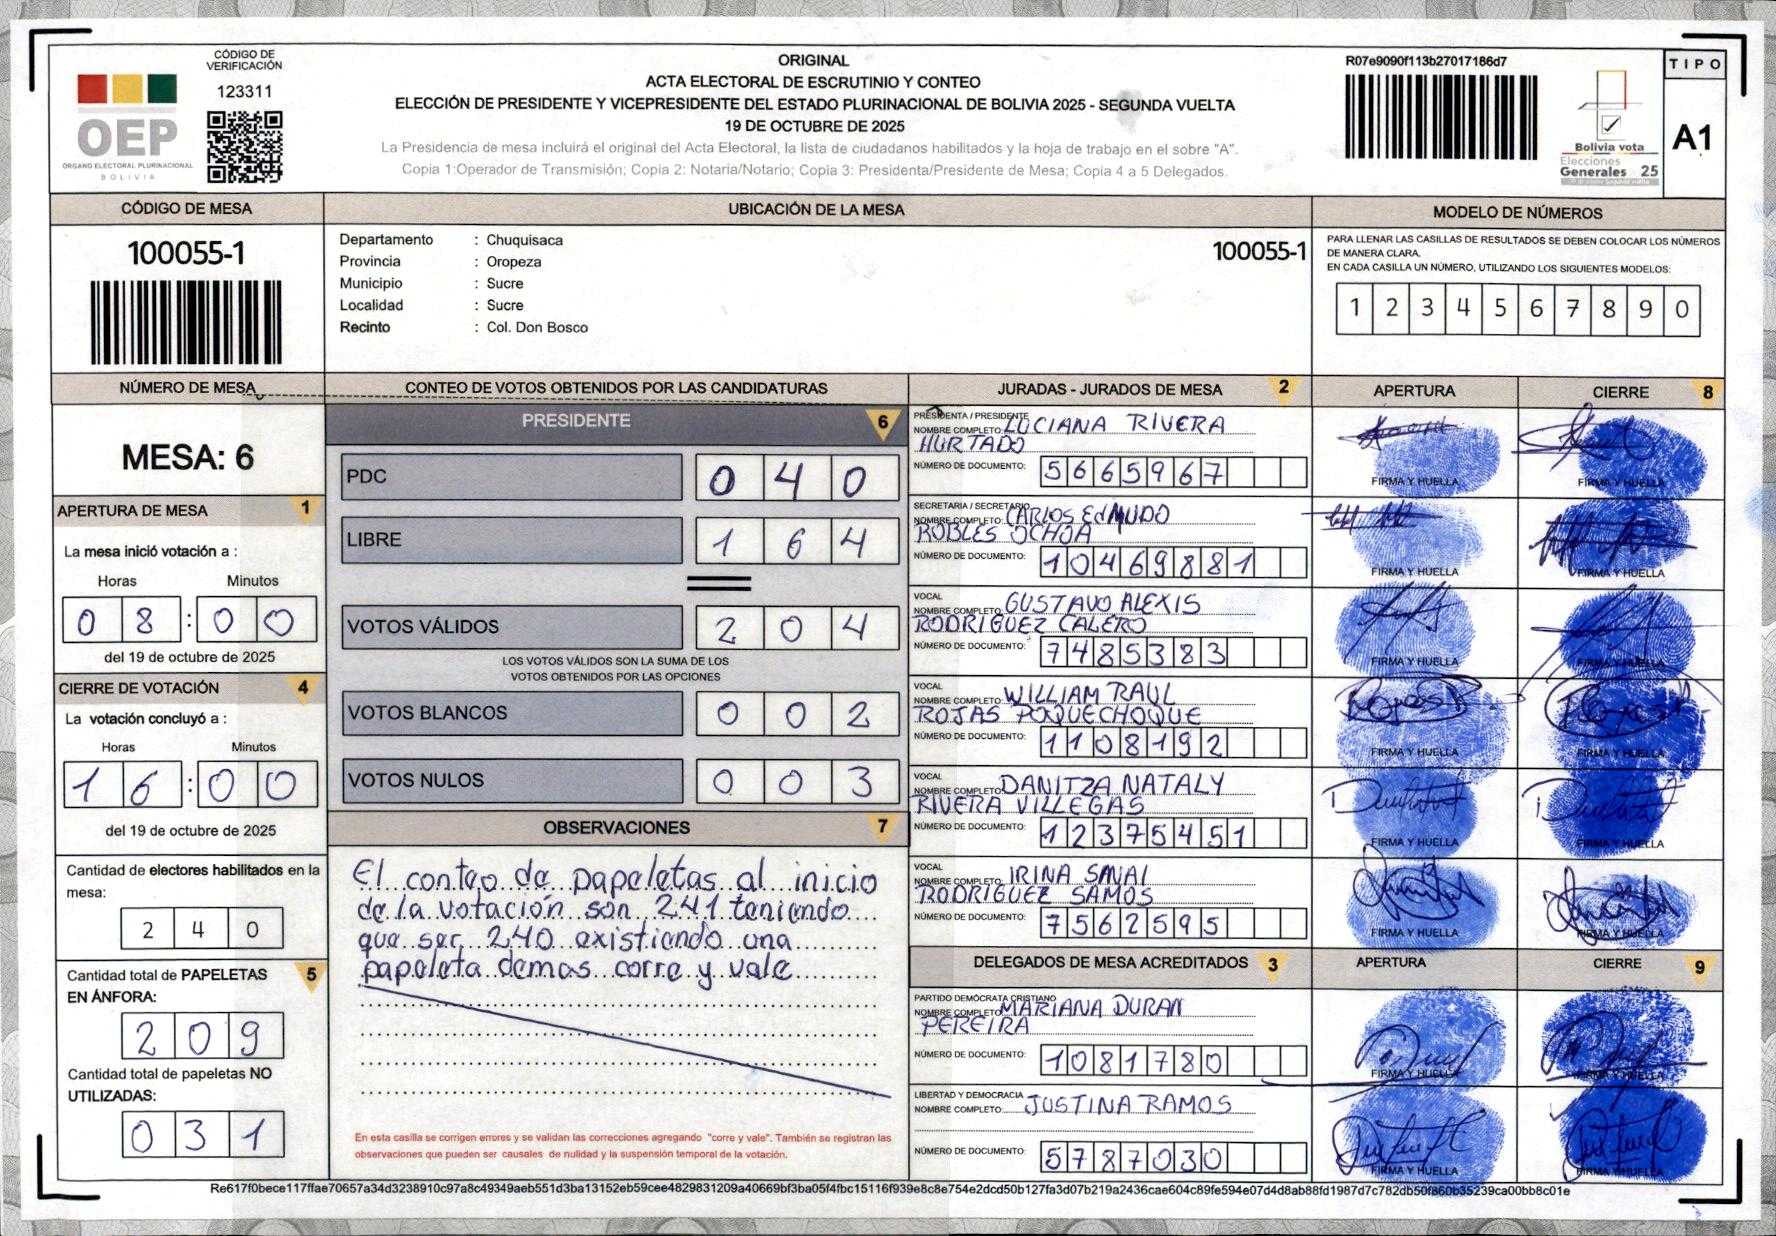 CÓDIGO DE VERIFICACIÓN
123311
OEP
ÓRGANO ELECTORAL PLURINACIONAL
BOLIVIA
ORIGINAL
ACTA ELECTORAL DE ESCRUTINIO Y CONTEO
ELECCIÓN DE PRESIDENTE Y VICEPRESIDENTE DEL ESTADO PLURINACIONAL DE BOLIVIA 2025 - SEGUNDA VUELTA
19 DE OCTUBRE DE 2025
La Presidencia de mesa incluirá el original del Acta Electoral, la lista de ciudadanos habilitados y la hoja de trabajo en el sobre "A".
Copia 1:Operador de Transmisión; Copia 2: Notaria/Notario; Copia 3: Presidenta/Presidente de Mesa; Copia 4 a 5 Delegados.
R07e9090f113b27017186d7
Bolivia vota
Elecciones
Generales 25
TIPO
A1
CÓDIGO DE MESA
100055-1
UBICACIÓN DE LA MESA
Departamento : Chuquisaca
Provincia : Oropeza
Municipio : Sucre
Localidad : Sucre
Recinto : Col. Don Bosco
100055-1
MODELO DE NÚMEROS
PARA LLENAR LAS CASILLAS DE RESULTADOS SE DEBEN COLOCAR LOS NÚMEROS
DE MANERA CLARA.
EN CADA CASILLA UN NÚMERO, UTILIZANDO LOS SIGUIENTES MODELOS:
1 2 3 4 5 6 7 8 9 0
NÚMERO DE MESA
MESA: 6
APERTURA DE MESA 1
La mesa inició votación a :
Horas Minutos
0 8 : 0 0
del 19 de octubre de 2025
CIERRE DE VOTACIÓN 4
La votación concluyó a :
Horas Minutos
1 6 : 0 0
del 19 de octubre de 2025
Cantidad de electores habilitados en la
mesa:
2 4 0
Cantidad total de PAPELETAS 5
EN ÁNFORA:
2 0 9
Cantidad total de papeletas NO
UTILIZADAS:
0 3 1
CONTEO DE VOTOS OBTENIDOS POR LAS CANDIDATURAS
PRESIDENTE 6
PDC 0 4 0
LIBRE 1 6 4
VOTOS VÁLIDOS 2 0 4
LOS VOTOS VÁLIDOS SON LA SUMA DE LOS
VOTOS OBTENIDOS POR LAS OPCIONES
VOTOS BLANCOS 0 0 2
VOTOS NULOS 0 0 3
OBSERVACIONES 7
El conteo de papeletas al inicio
de la votación son 241 teniendo
que ser 240 existiendo una
papeleta demas corre y vale
En esta casilla se corrigen errores y se validan las correcciones agregando "corre y vale". También se registran las
observaciones que pueden ser causales de nulidad y la suspensión temporal de la votación.
JURADAS - JURADOS DE MESA 2
APERTURA
CIERRE 8
PRESIDENTA / PRESIDENTE
NOMBRE COMPLETO: LUCIANA RIVERA
HURTADO
NÚMERO DE DOCUMENTO: 5665967
FIRMA Y HUELLA FIRMA Y HUELLA
SECRETARIA / SECRETARIO
NOMBRE COMPLETO: CARLOS EdMUDO
ROBLES OCHOA
NÚMERO DE DOCUMENTO: 10469881
FIRMA Y HUELLA FIRMA Y HUELLA
VOCAL
NOMBRE COMPLETO: GUSTAVO ALEXIS
RODRIGUEZ CALERO
NÚMERO DE DOCUMENTO: 7485383
FIRMA Y HUELLA FIRMA Y HUELLA
VOCAL
NOMBRE COMPLETO: WILLIAM RAUL
ROJAS POQUECHOQUE
NÚMERO DE DOCUMENTO: 1108192
FIRMA Y HUELLA FIRMA Y HUELLA
VOCAL
NOMBRE COMPLETO: DANITZA NATALY
RIVERA VILLEGAS
NÚMERO DE DOCUMENTO: 12375451
FIRMA Y HUELLA FIRMA Y HUELLA
VOCAL
NOMBRE COMPLETO: IRINA SINAI
RODRIGUEZ SAMOS
NÚMERO DE DOCUMENTO: 7562595
FIRMA Y HUELLA FIRMA Y HUELLA
DELEGADOS DE MESA ACREDITADOS 3
APERTURA
CIERRE 9
PARTIDO DEMÓCRATA CRISTIANO
NOMBRE COMPLETO: MARIANA DURAN
PEREIRA
NÚMERO DE DOCUMENTO: 1081780
FIRMA Y HUELLA FIRMA Y HUELLA
LIBERTAD Y DEMOCRACIA
NOMBRE COMPLETO: JUSTINA RAMOS
NÚMERO DE DOCUMENTO: 5787030
FIRMA Y HUELLA FIRMA Y HUELLA